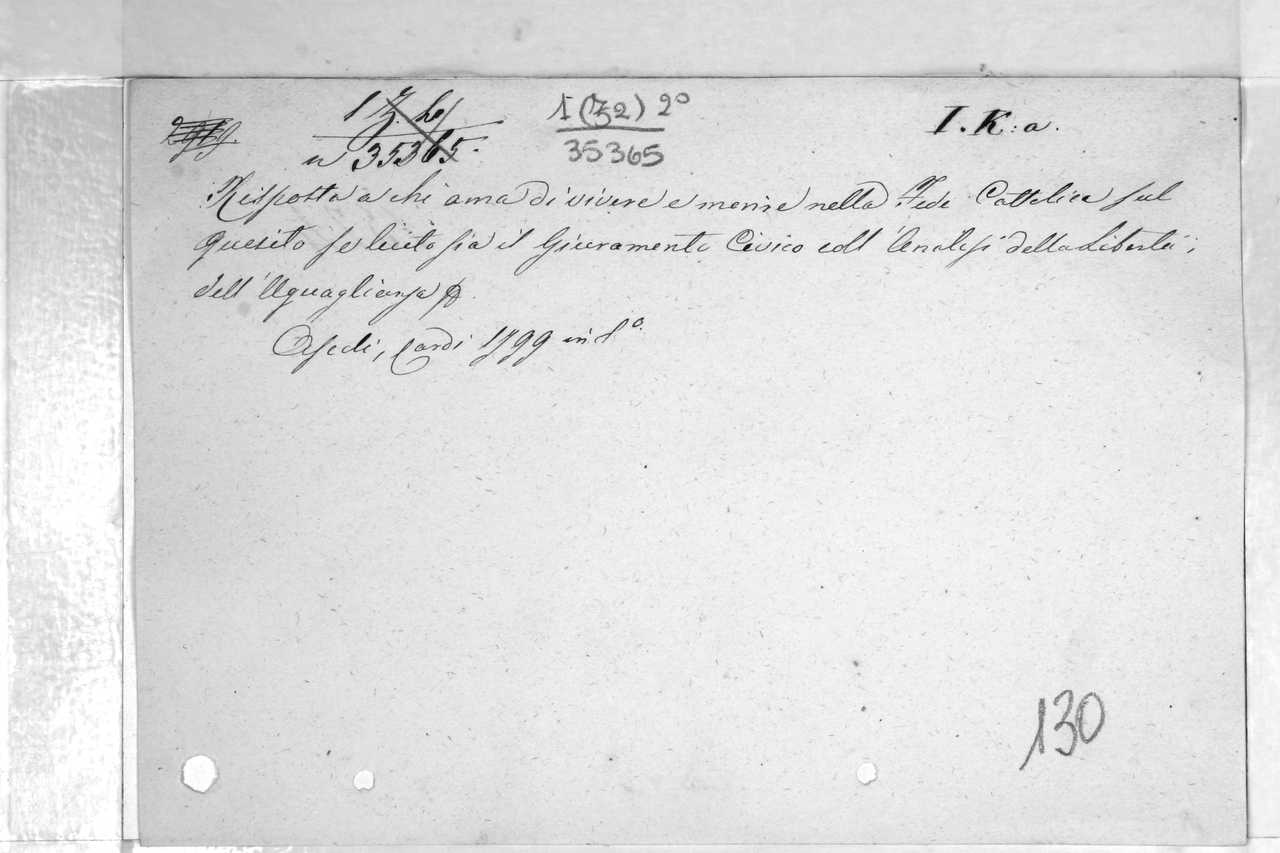 1 (Z2) 2º
I. K: a.
n 35365.
35365
Risposta a chi ama di vivere e morire nella Fede Cattolica sul
quesito se lecito sia il Giuramento Civico coll' Analisi della Libertà,
dell' Uguaglianza
1799 in
130